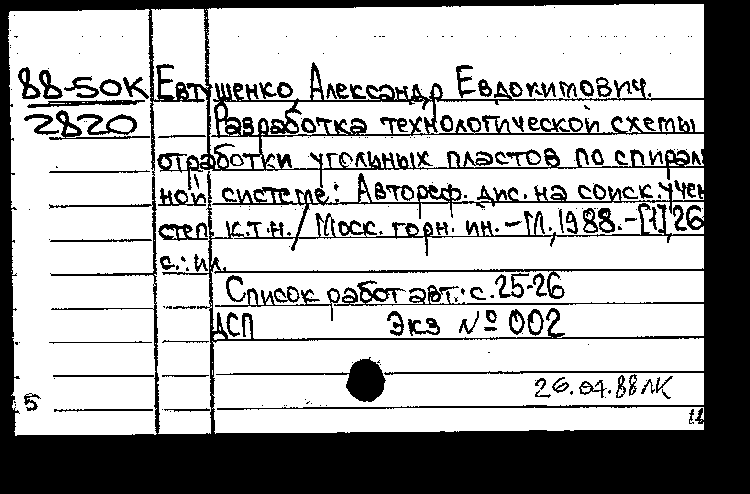 88-50К Евтушенко Александр Евдокимович.
2820 Разработка технологической схемы
отработки угольных пластов по спираль
ной системе: Автореф. дис. на соиск. учен
степ. к.т.н. / Моск. горн. ин. - М., 1988. - [1], 26
с.: ил.
Список работ авт.: с. 25-26
ДСП Экз № 002
26.04.88 ЛК
5